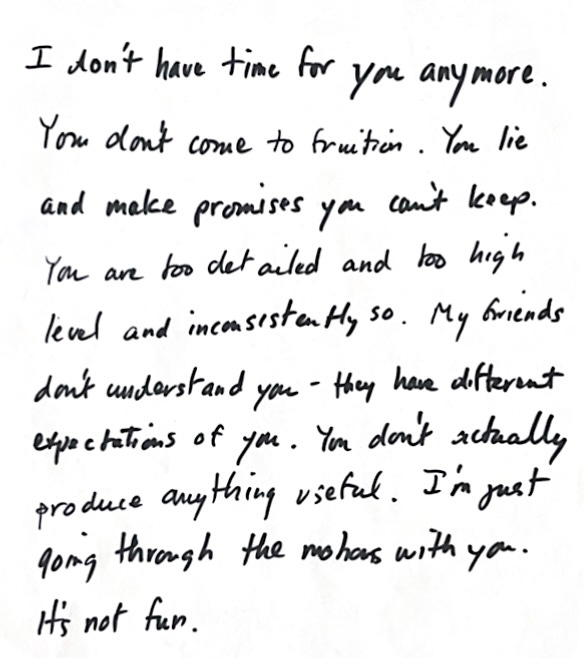 I don't have time for you anymore.
You don't come to fruition. You lie
and make promises you can't keep.
You are too detailed and too high
level and inconsistently so. My friends
don't understand you - they have different
expectations of you. You don't actually
produce anything useful. I'm just
going through the motions with you.
It's not fun.